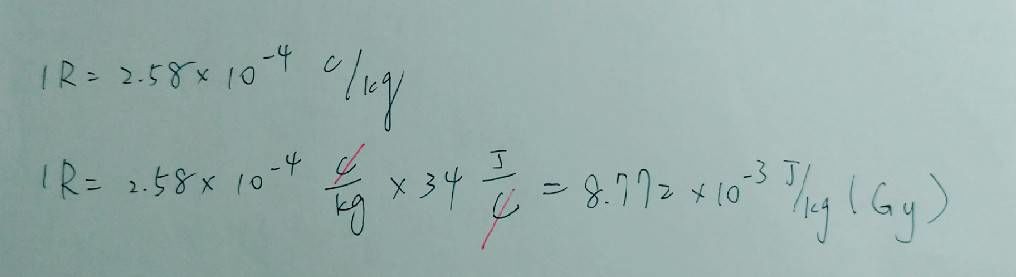 1R = 2.58 × 10⁻⁴ C/kg
1R = 2.58 × 10⁻⁴ C/kg × 34 J/C = 8.772 × 10⁻³ J/kg (Gy)